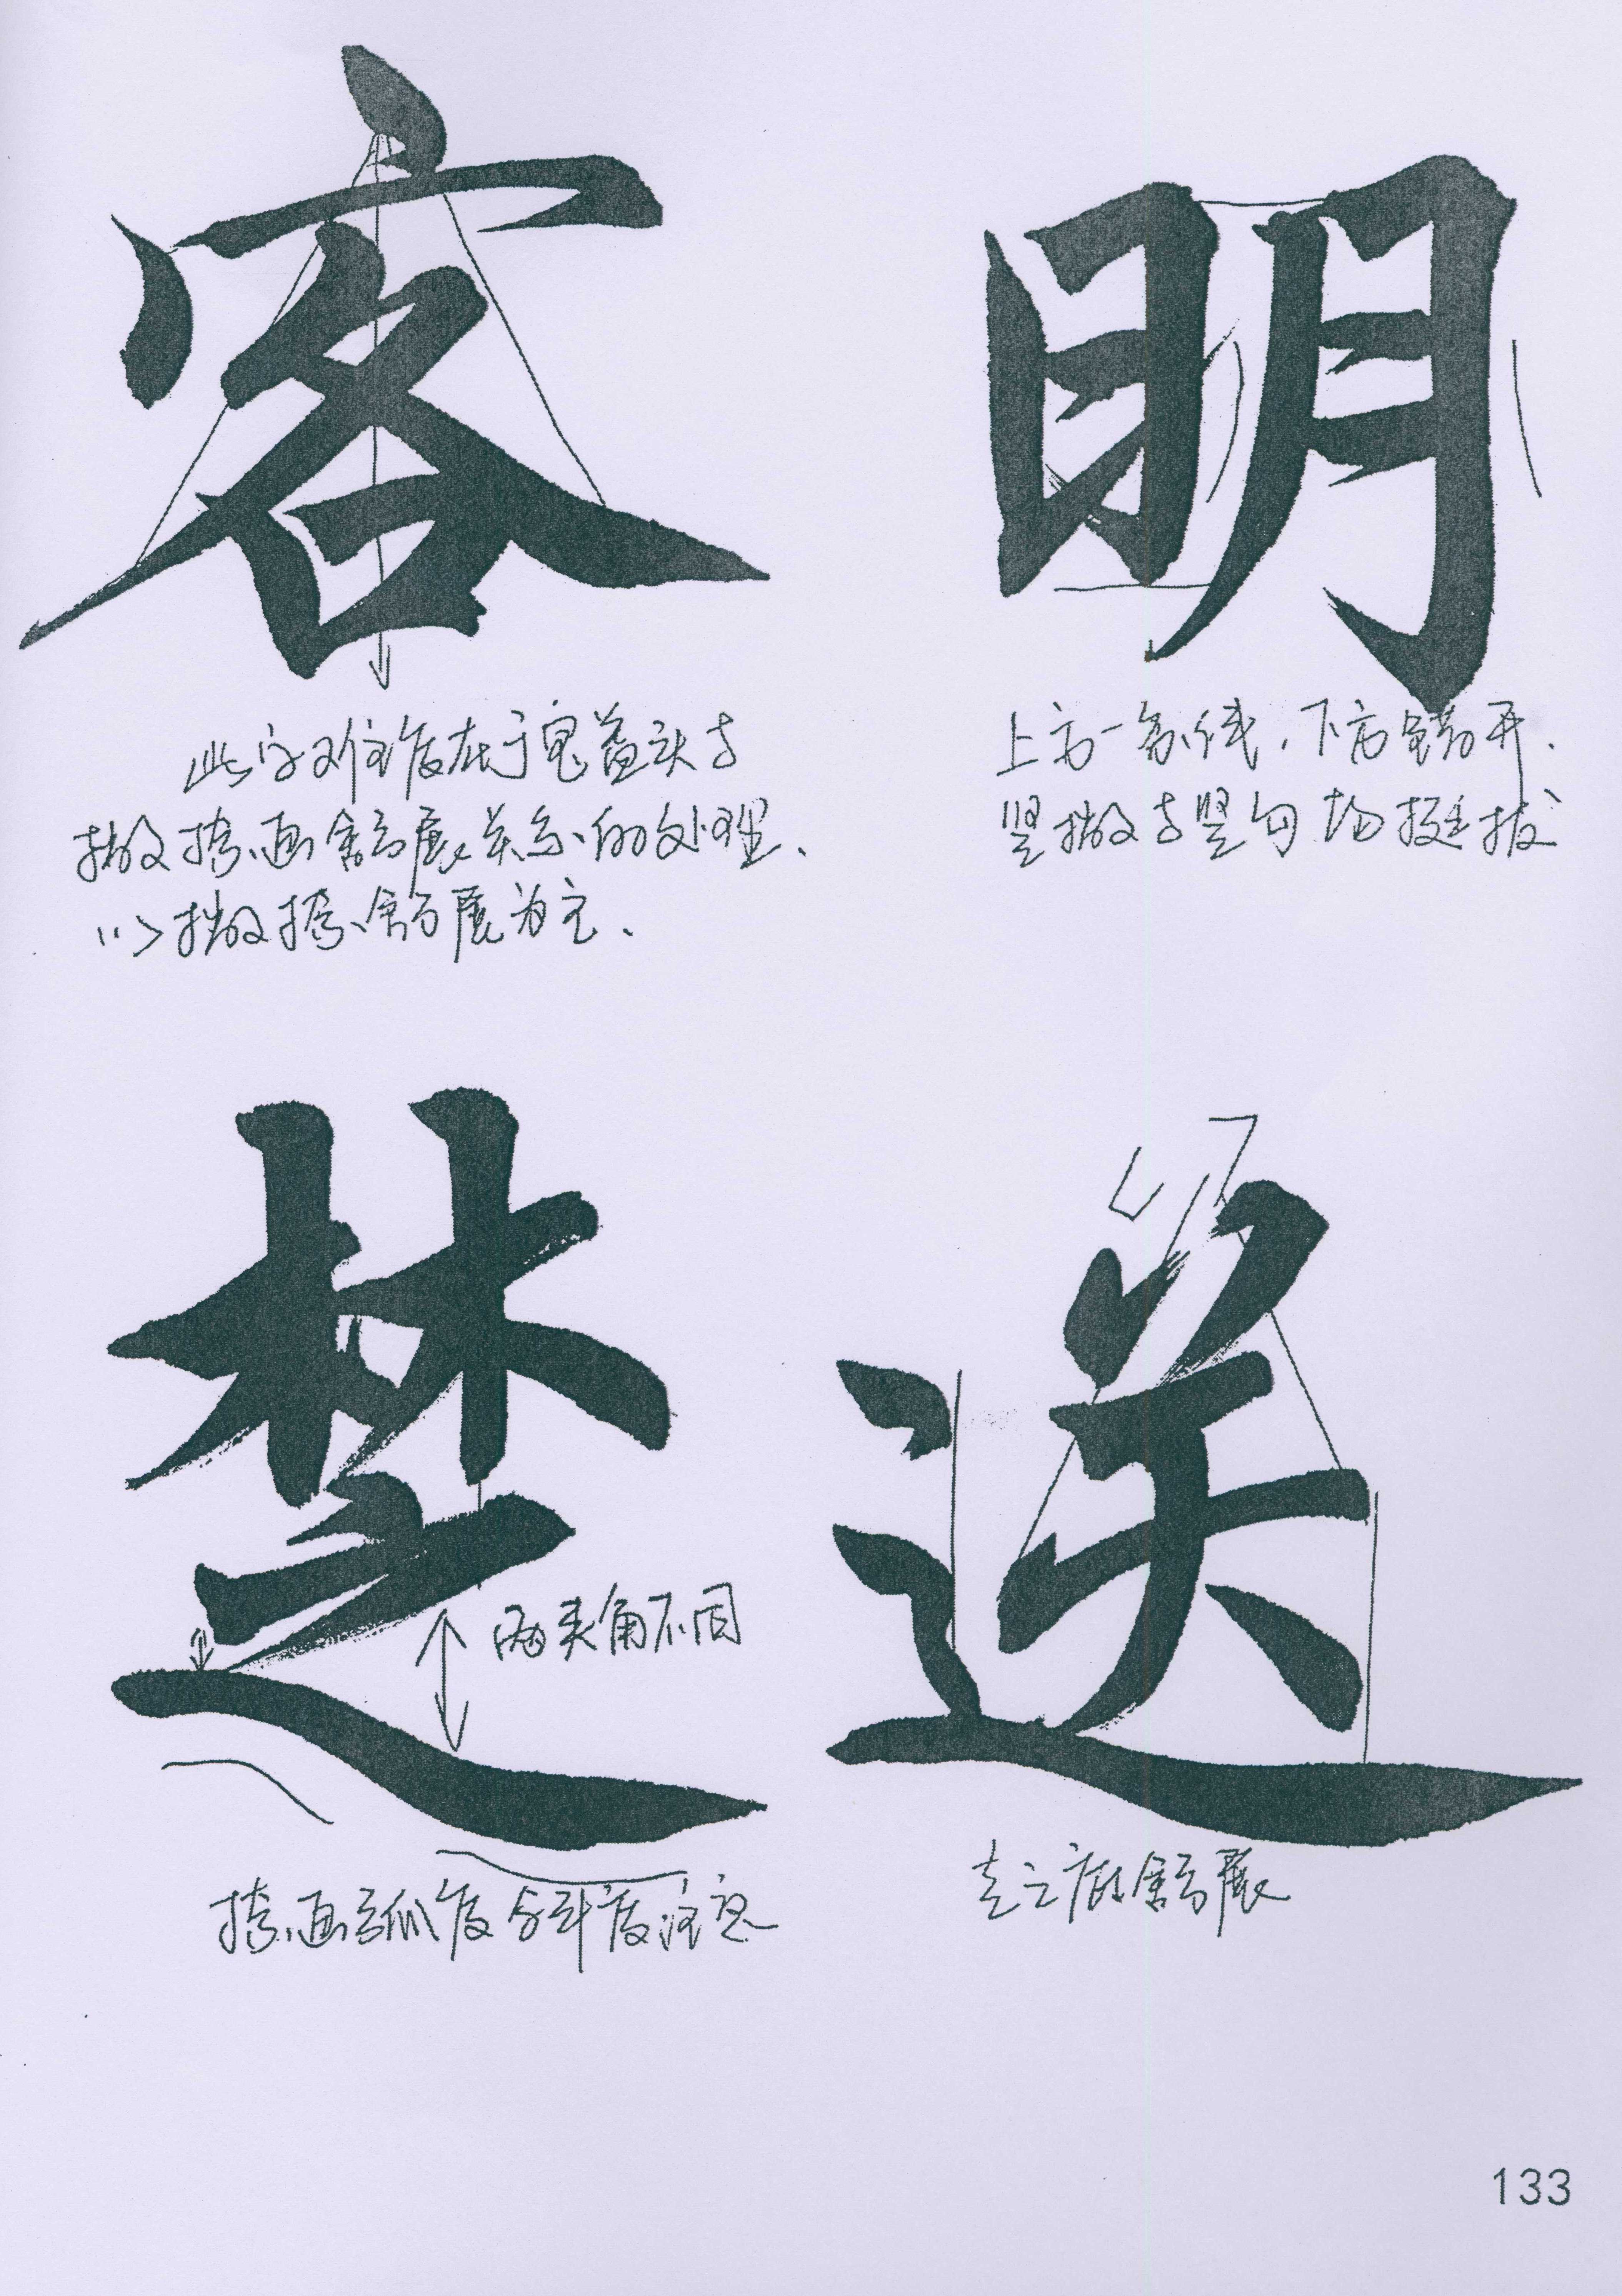 客
此字难度在于宝盖头与
撇捺画舒展关系的处理、
以撇捺舒展为主、
明
上方一条线，下方错开.
竖撇与竖勾均挺拔
楚
两夹角不同
捺画弧度与斜度注意
送
走之底舒展
133